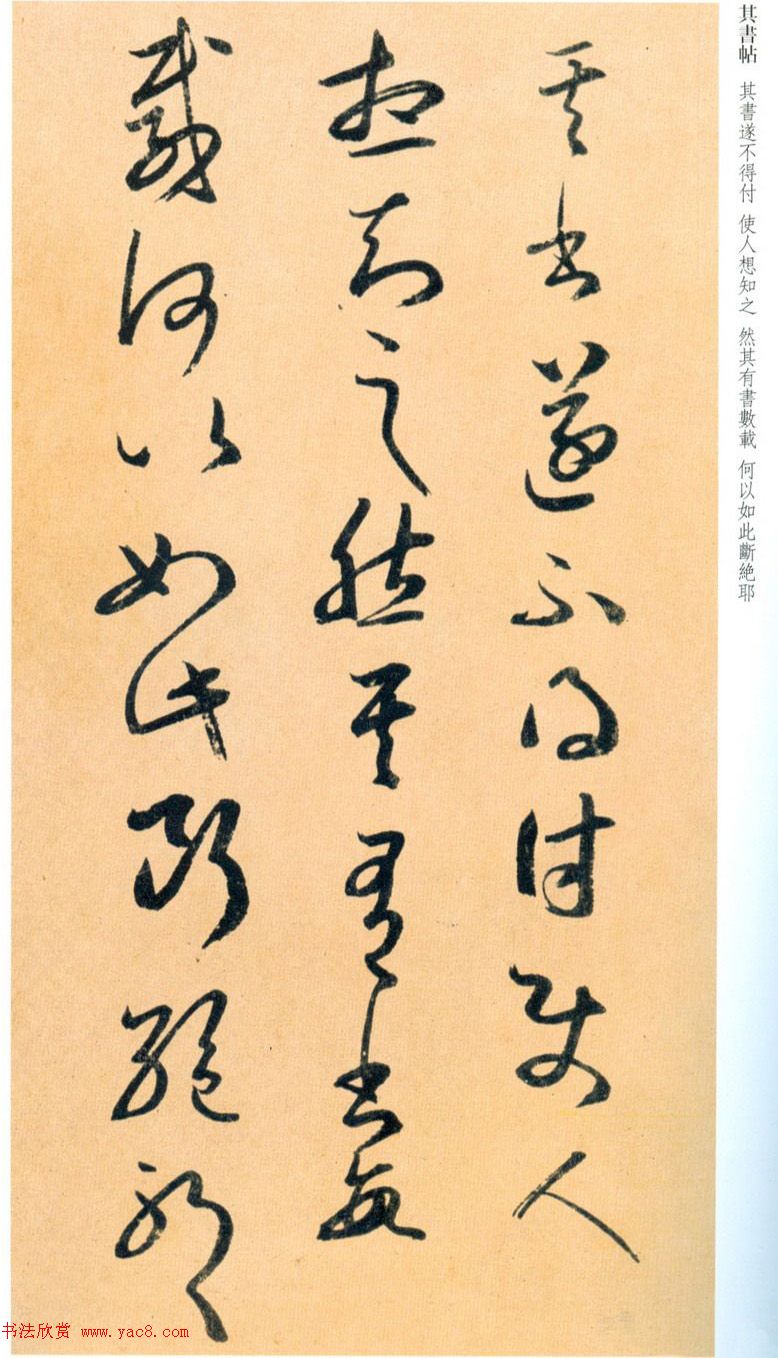 其書帖 其書遂不得付 使人想知之 然其有書數載 何以如此斷絶耶
其書遂不得付使人
想知之然其有書數
載何以如此斷絶耶
书法欣赏 www.yac8.com